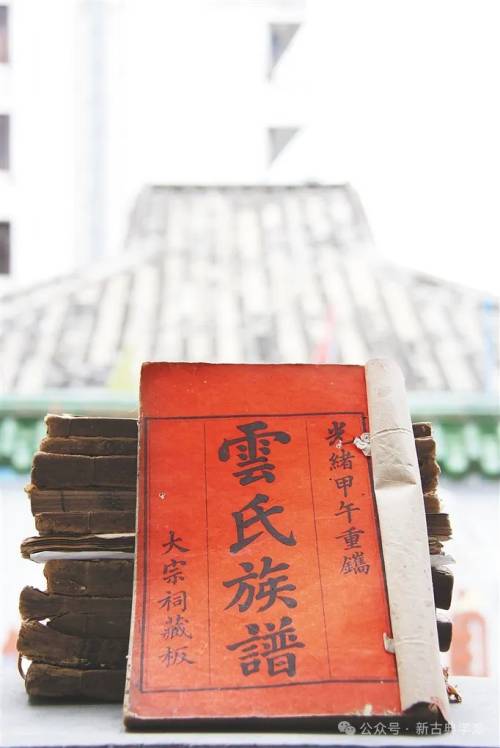 光緒甲午重鐫
雲氏族譜
大宗祠藏板
公众号·新古典学派